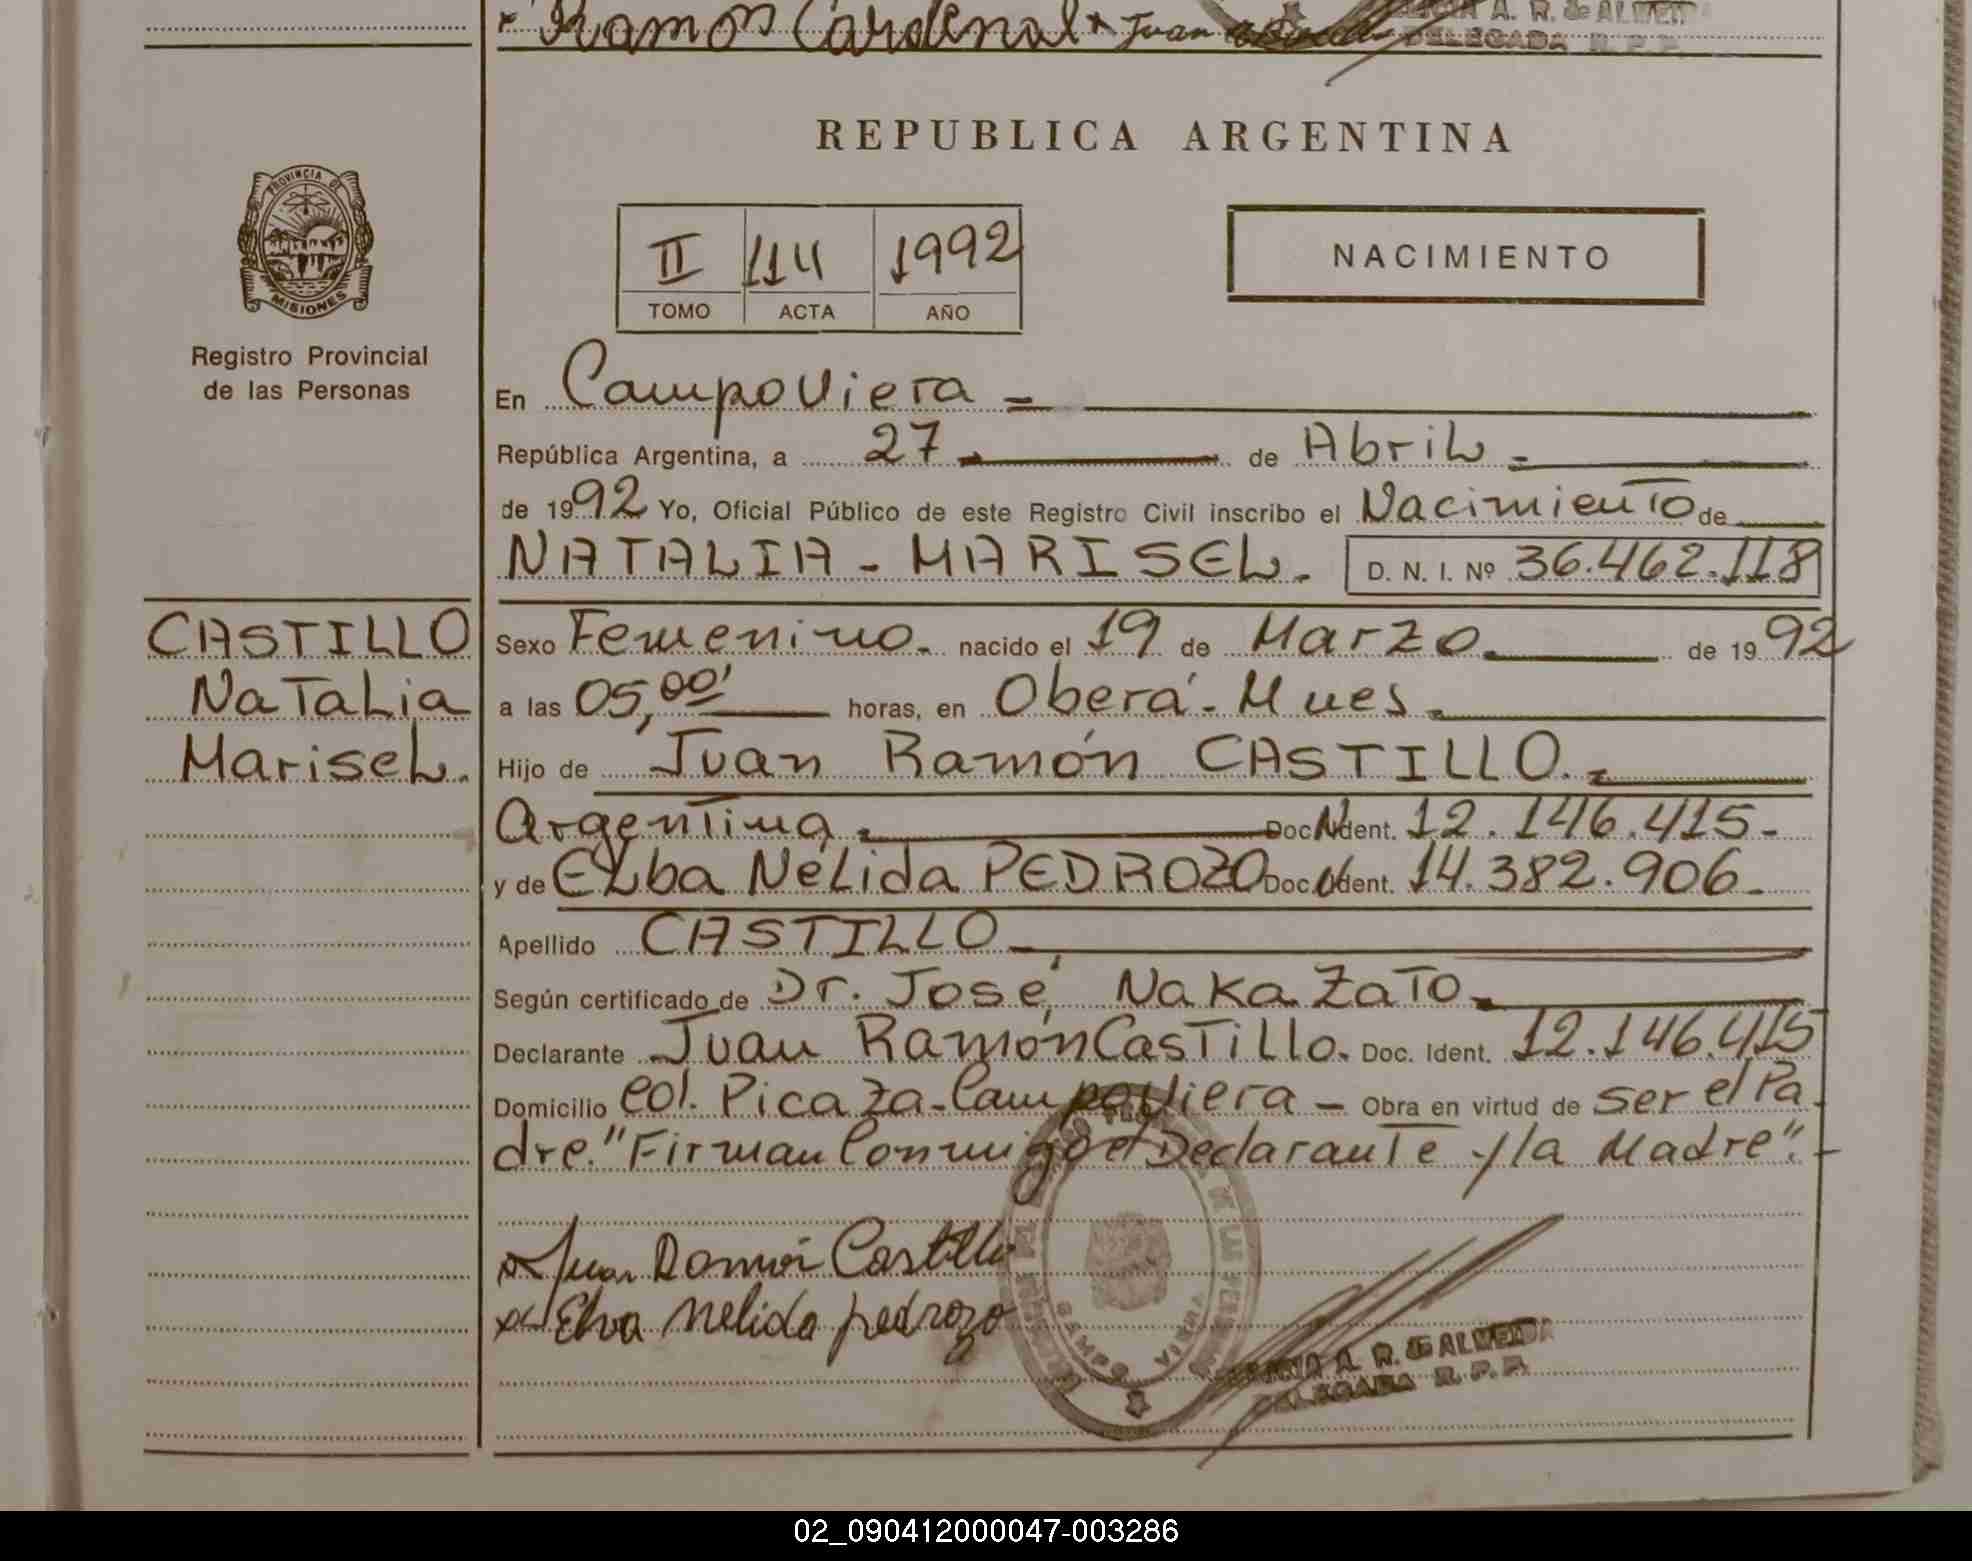 Ramos Cardenal Juan
A. R. de ALMEIDA
DELEGADA R. P. P.
REPUBLICA ARGENTINA
PROVINCIA DE
MISIONES
Registro Provincial
de las Personas
II 114 1992
TOMO ACTA AÑO
NACIMIENTO
En Campo Viera
República Argentina, a 27 de Abril
de 1992 Yo, Oficial Público de este Registro Civil inscribo el Nacimiento de
NATALIA - MARISEL. D. N. I. Nº 36.462.118
CASTILLO
Natalia
Marisel.
Sexo Femenino. nacido el 19 de Marzo de 1992
a las 05,00' horas, en Oberá - Mnes.
Hijo de Juan Ramón CASTILLO.
Argentina Doc. Ident. 12.146.415-
y de Elba Nelida PEDROZO Doc. Ident. 14.382.906-
Apellido CASTILLO
Según certificado de Dr. José Nakazato
Declarante Juan Ramón Castillo. Doc. Ident. 12.146.415
Domicilio Col. Picaza - Campo Viera - Obra en virtud de ser el Pa-
dre. "Firman Conmigo el Declarante y la Madre".-
x Juan Ramón Castillo
x Elva Nelida pedrozo
CAMPO VIERA
A. R. de ALMEIDA
DELEGADA R. P. P.
02_090412000047-003286